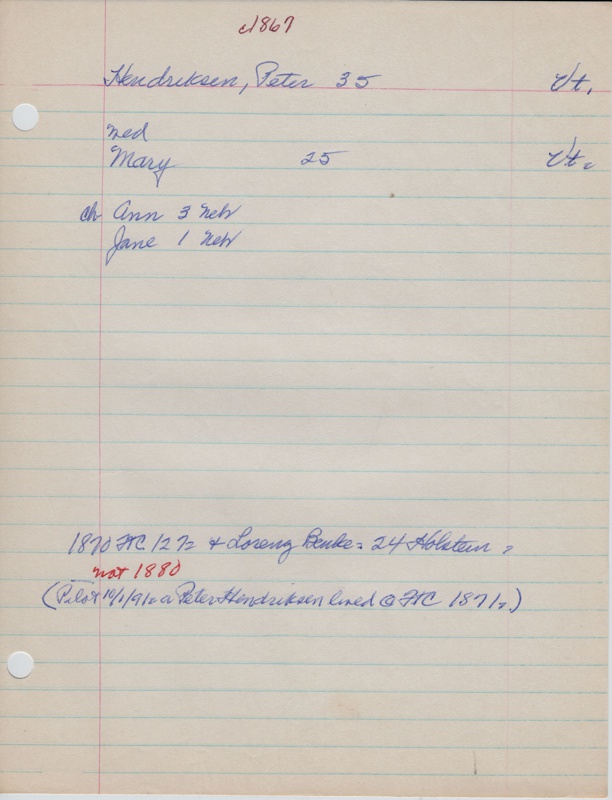 c1867
Hendriksen, Peter 35 Vt.
med
Mary 25 Vt.
ch Ann 3 Neb
Jane 1 Neb
1870 FTC 12 + Lorenz 24 Holstein
not 1880
(Pilot a Peter Hendriksen lived @ FTC 1871